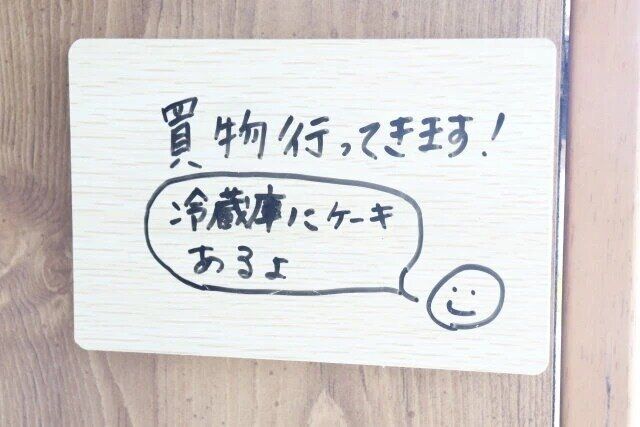 買物行ってきます!
冷蔵庫にケーキ
あるよ